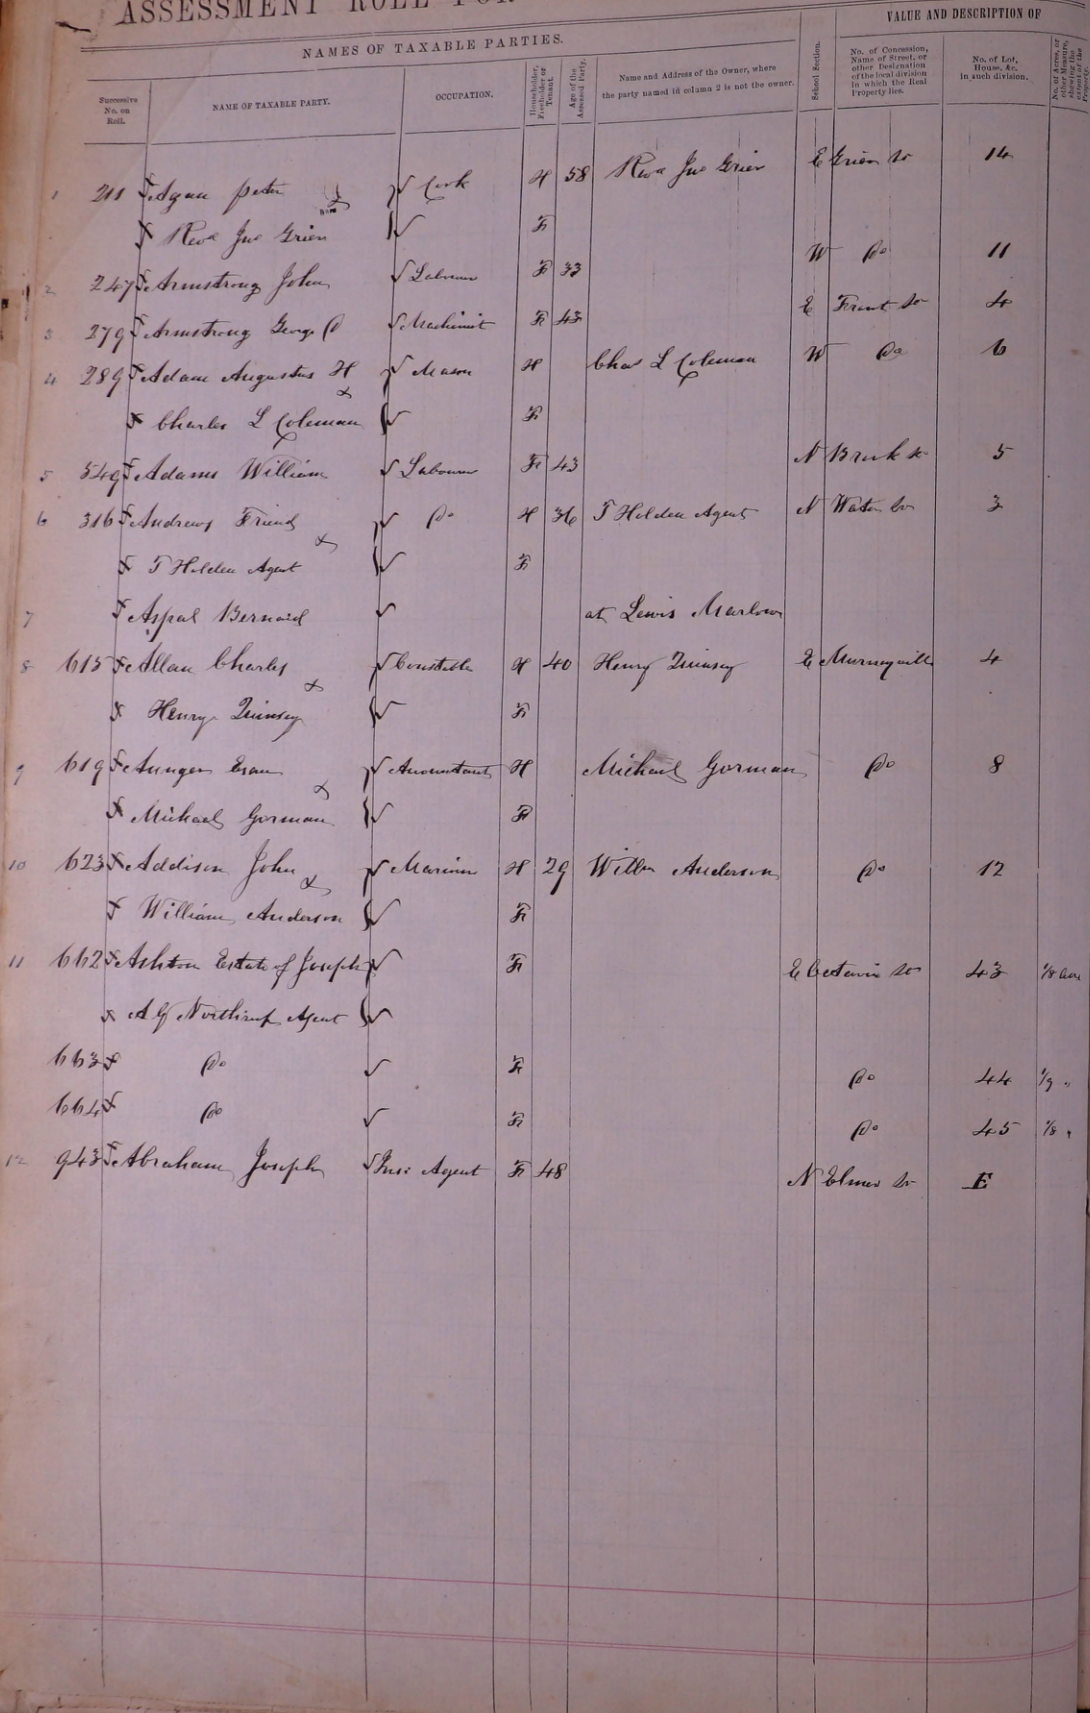 ASSESSMENT ROLL FOR
NAMES OF TAXABLE PARTIES. VALUE AND DESCRIPTION OF
Successive No. on Roll. NAME OF TAXABLE PARTY. OCCUPATION. Householder, Freeholder or Tenant. Age of the Assessed Party. Name and Address of the Owner, where the party named in column 2 is not the owner. School Section. No. of Concession, Name of Street, or other Designation of the local division in which the Real Property lies. No. of Lot, House, &c. in such division. No. of Acres, or other Measure, shewing the extent of the Property.
1 211 Agan Peter Cook H 58 Revd Jno Grier E Grier St 14
Revd Jno Grier F
2 247 Armstrong John Labourer F 33 W Do 11
3 279 Armstrong George Machinist F 43 E Front St 4
4 289 Adam Augustus H Mason H Chas L Coleman W Do 6
Charles L Coleman F
5 549 Adams William Labourer F 43 N 5
6 316 Andrews Friend Do H 36 T Holden Agent N Water St 3
T Holden Agent F
7 Aspal Bernard at Lewis Marlow
8 615 Allan Charles Constable H 40 Henry Quinsey E Murneyville 4
Henry Quinsey F
9 619 Aunger Esau Accountant H Michael Gorman Do 8
Michael Gorman F
10 623 Addison John Mariner H 29 Willm Anderson Do 12
William Anderson F
11 662 Ashton Estate of Joseph F E Octavia St 43 1/8 Acre
A G Northrup Agent
663 Do F Do 44 1/9 "
664 Do F Do 45 1/8 "
12 943 Abraham Joseph Ins Agent F 48 N Elmer St E